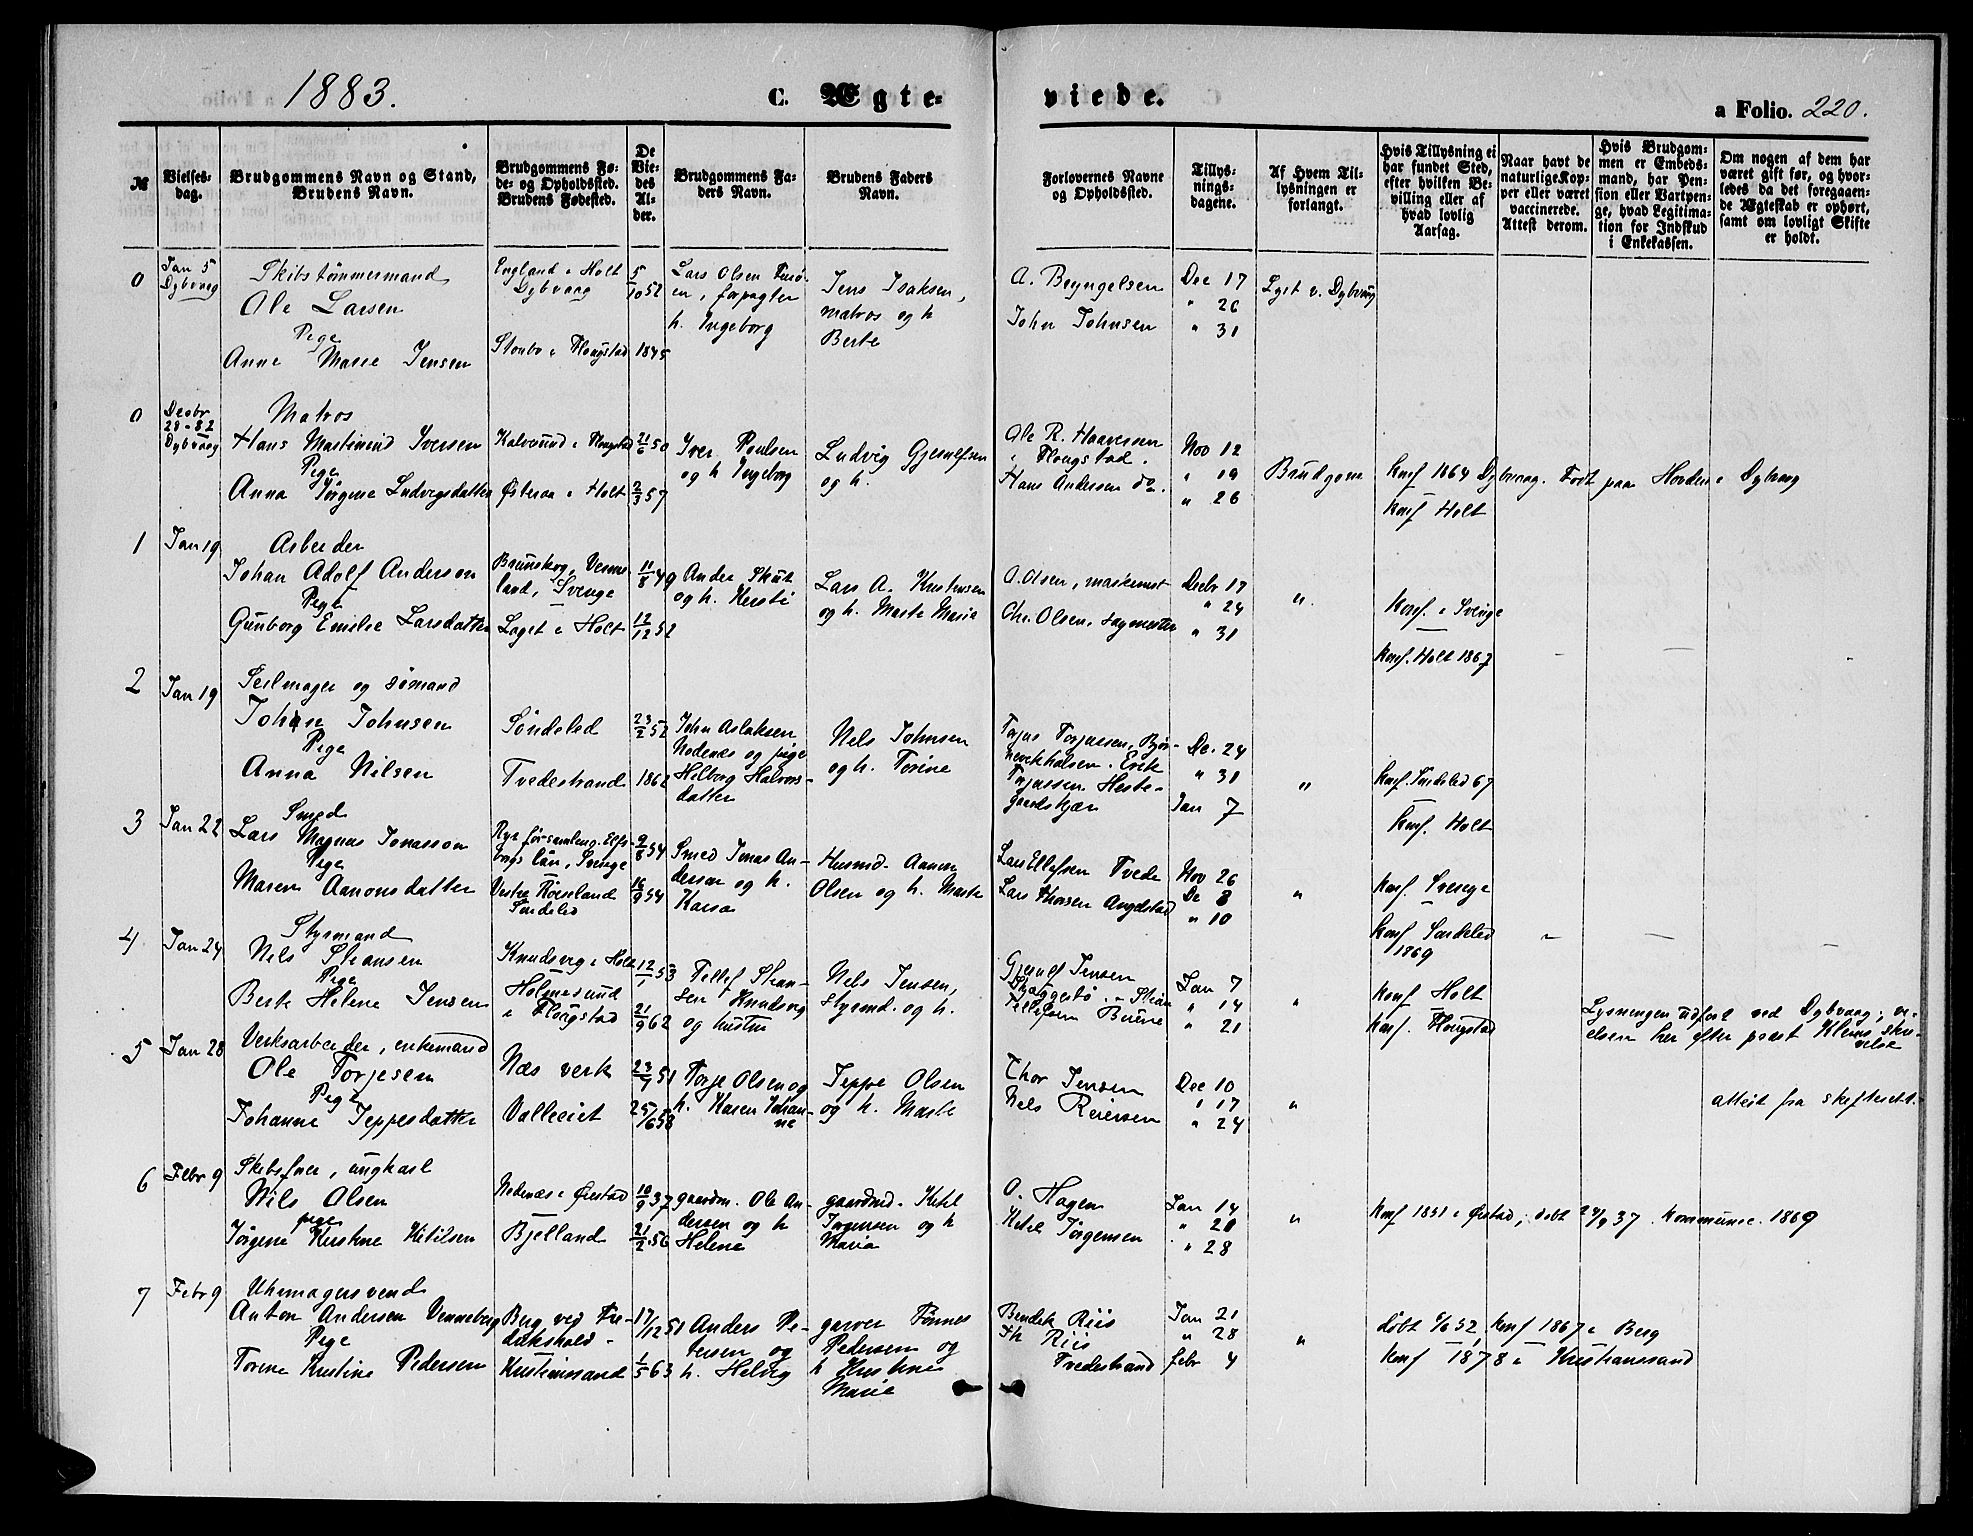 1883. C. Ægte- viede. a Folio. 220.
№
Vielses-
dag.
Brudgommens Navn og Stand,
Brudens Navn.
Brudgommens Fø-
de- og Opholdssted.
Brudens Fødested.
De
Vie-
des
Al-
der.
Brudgommens Fa-
ders Navn.
Brudens Faders
Navn.
Forlovernes Navne
og Opholdssted.
Tillys-
nings-
dagene.
Af Hvem Til-
lysningen er
forlangt.
Hvis Tillysning ei
har fundet Sted,
efter hvilken Be-
villing eller af
hvad lovlig
Aarsag.
Naar havt de
naturlige Kop-
per eller været
vaccinerede.
Attest derom.
Hvis Brudgom-
men er Embeds-
mand, har Pen-
sion eller Vartpen-
ge, hvad Legitima-
tion for Indskud
i Enkekassen.
Om nogen af dem har
været gift før, og hvor-
ledes da det foregaaen-
de Ægteskab er ophørt,
samt om lovligt Skifte
er holdt.
0
Jan 5
Dybvaag
Skibstømmermand
Ole Larsen
Pige
Anne Marie Jensen
England i Holt
Dybvaag
Stonbo i Flougstad
5/10 52
1845
Lars Olsen
en, forpagter
h. Ingeborg
Jens Isaksen,
matros og h
Berte
A. Bryngelsen
John Johnsen
Dec 17
" 26
" 31
Lyst v. Dybvaag
0
Decbr
28-82
Dybvaag
Matros
Hans Martinius Iversen
Pige
Anna Jørgine Ludvigsdatter
Kalvesund i Flougstad
Østeraa i Holt
21/6 50
2/3 57
Iver Poulsen
og h Ingeborg
Ludvig Gjerulfsen
og h.
Ole R. Haaversen
i Flougstad.
Hans Andersen do.
Nov 12
" 19
" 26
Brudgom
Konf 1864 Dybvaag. Født paa Hovden i Dybvaag
Konf Holt
1
Jan 19
Arbeider
Johan Adolf Anderson
Pige
Gunborg Emilie Larsdatter
Brunskog, Verme-
land, Sverige
Laget i Holt
11/8 49
12/12 52
Ander Skut
og h. Kersti
Lars A. Kristensen
og h. Marte Maria
O. Olsen, maskinmst
Chr. Olsen, sagmester
Decbr 17
" 24
" 31
"
Konf. i Sverige
Konf. Holt 1867
2
Jan 19
Seilmager og sømand
Johan Johnsen
Pige
Anna Nilsen
Søndeled
Tvedestrand
23/2 52
1862
John Aslaksen
Nedenes og pige
Helborg Halvors-
datter
Nels Johnsen
og h. Torine
Torjus Torjussen, Bjør-
nerikholsen. Erik
Torjussen Heste-
gaardskjær
De. 24
" 31
Jan 7
"
Konf. Søndeled 67
Konf. Holt
3
Jan 22
Smed
Lars Magnus Jonasson
Pige
Maren Aanonsdatter
Rya församling. Elfs-
borgs län, Sverige
Vestre Røisland
Søndeled
9/8 54
16/9 54
Smed Jonas An-
derson og h.
Karsa
Husmd. Aanon
Olsen og h. Marte
Lars Ellefsen Tvede
Lars Thorsen Angelstad
Nov 26
De 8
" 10
"
Konf. Sverige
Konf Søndeled
1869
4
Jan 24
Styrmand
Nels Stiansen
Pige
Berte Helene Jensen
Knudsvig i Holt
Holmesund
i Flougstad
12/1 53
21/9 62
Tellef Stian-
sen Knudsvig
og hustru
Nels Jensen,
styrmd. og h.
Gjerulf Jensen
Skaggestø. Stian
Tellefsen Buene
Jan 7
" 14
" 21
"
Konf Holt
Konf. Flougstad
Lysningen udført ved Dybvaag, vi-
elsen her efter prost Klems skri-
velse
5
Jan 28
Verksarbeider, enkemand
Ole Torjesen
Pige
Johanne Jeppesdatter
Næs verk
Valleeiet
23/7 51
25/6 58
Torje Olsen og
h. Karen Johan-
ne
Jeppe Olsen
og h. Marte
Thor Jensen
Nels Reiersen
Dec 10
" 17
" 24
"
attest fra skifteret.
6
Febr 9
Skibsfører, ungkarl
Nils Olsen
pige
Jørgine Kirstine Kitilsen
Nedenæs i Øiestad
Bjelland
10/9 37
21/2 56
gaardm. Ole An-
dersen og h
Helene
gaardmd. Kitil
Jørgensen og h
Maria
O. Hagen
Ketil Jørgensen
Jan 14
" 21
" 28
"
Konf 1851 i Øiestad, døbt 24/9 37. Kommunic. 1869
7
Febr 9
Uhrmagersvend
Anton Andersen Venneberg
Pige
Torine Kristine Pedersen
Berg ved Fre-
drikshald -
Kristianssand
17/12 51
1/5 63
Anders Pe-
tersen og
h. Helvig
garver Tønnes
Pedersen og
h Kristine
Marie
Bendik Riis
Th Riis
Tvedestrand
Jan 21
" 28
febr 4
"
døbt 6/6 52, Konf 1867 i Berg
Konf 1878 i Kristianssand